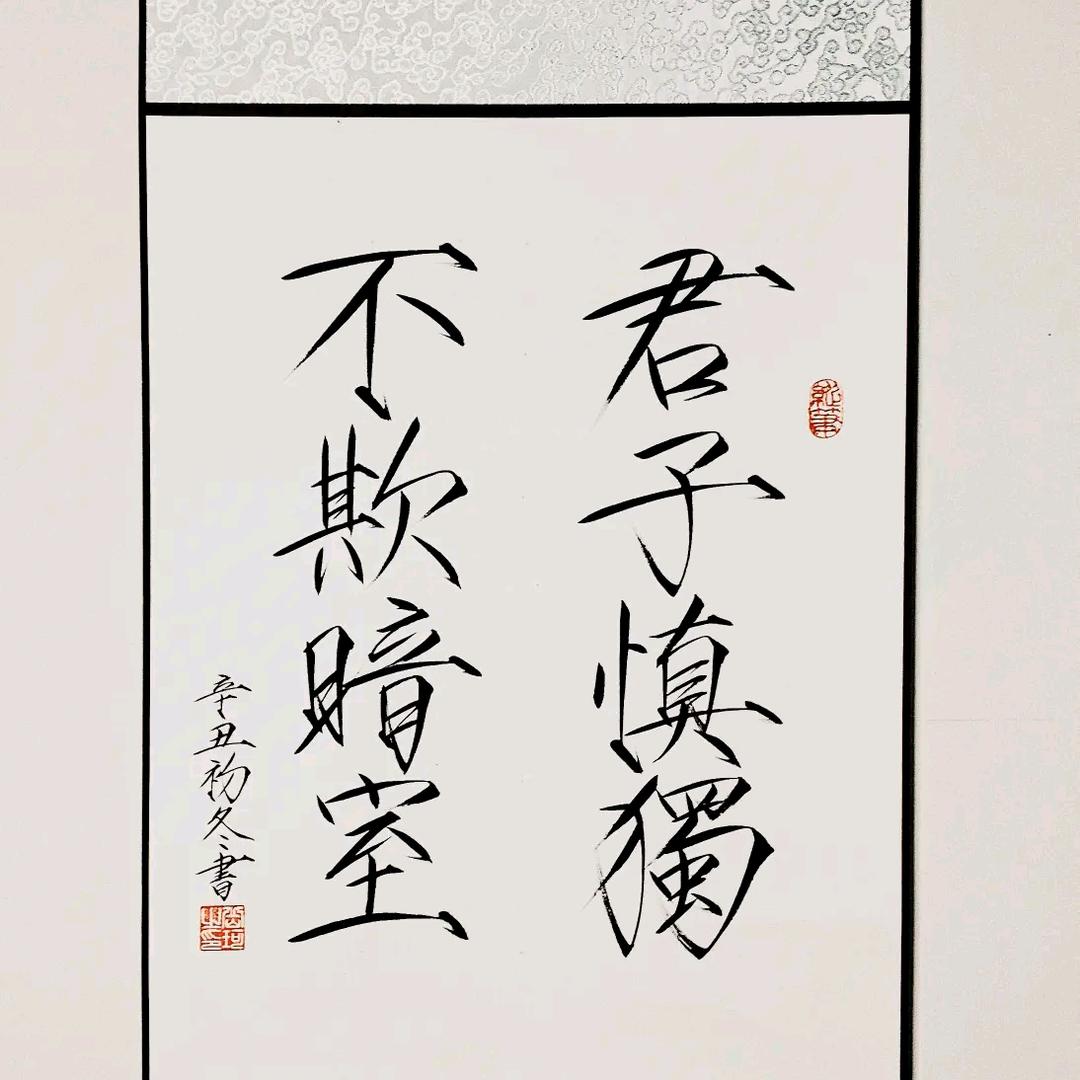 君子慎獨
不欺暗室
辛丑初冬書